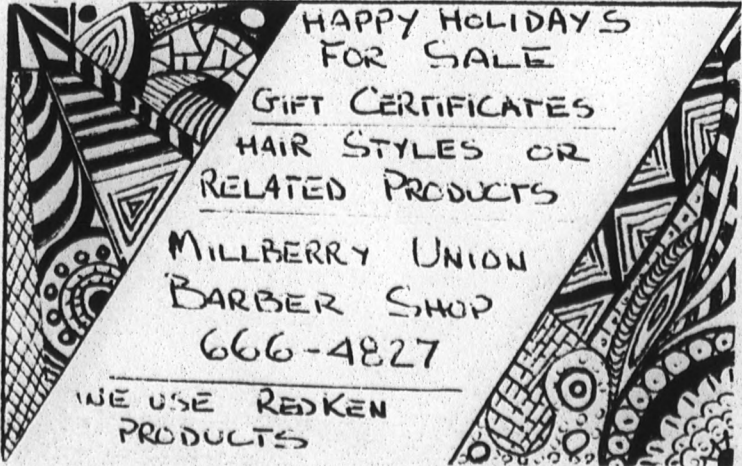 HAPPY HOLIDAYS
FOR SALE
GIFT CERTIFICATES
HAIR STYLES OR
RELATED PRODUCTS
MILLBERRY UNION
BARBER SHOP
666-4827
WE USE REDKEN
PRODUCTS